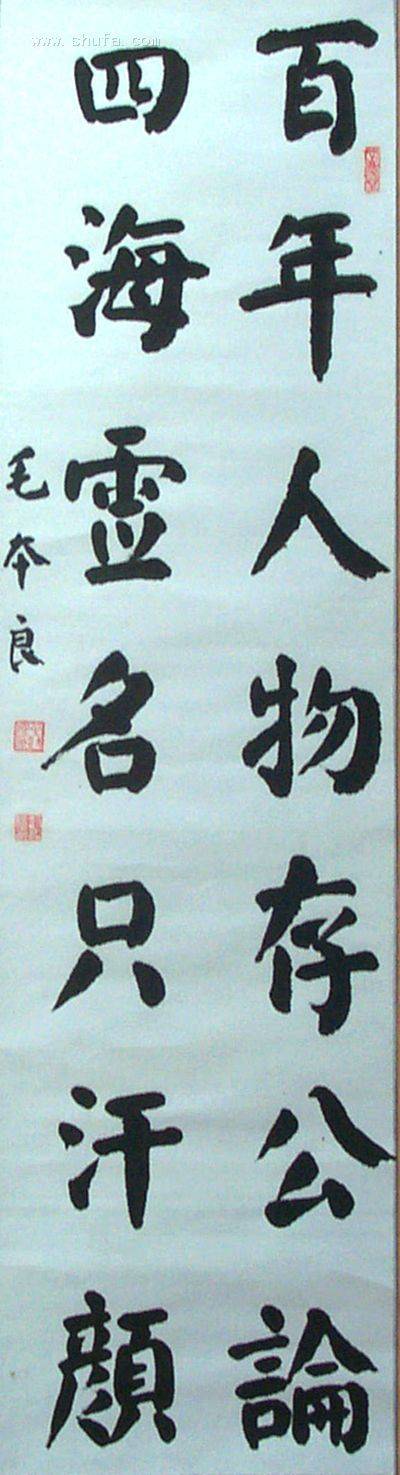 百年人物存公論
四海霊名只汗顏
毛本良
www.shufa.com